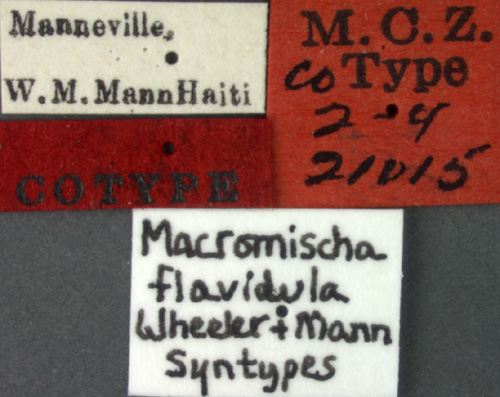 Manneville,
W.M.Mann Haiti
M.C.Z.
Co Type
2-4
21015
COTYPE
Macromischa
flavidula
Wheeler + Mann
Syntypes